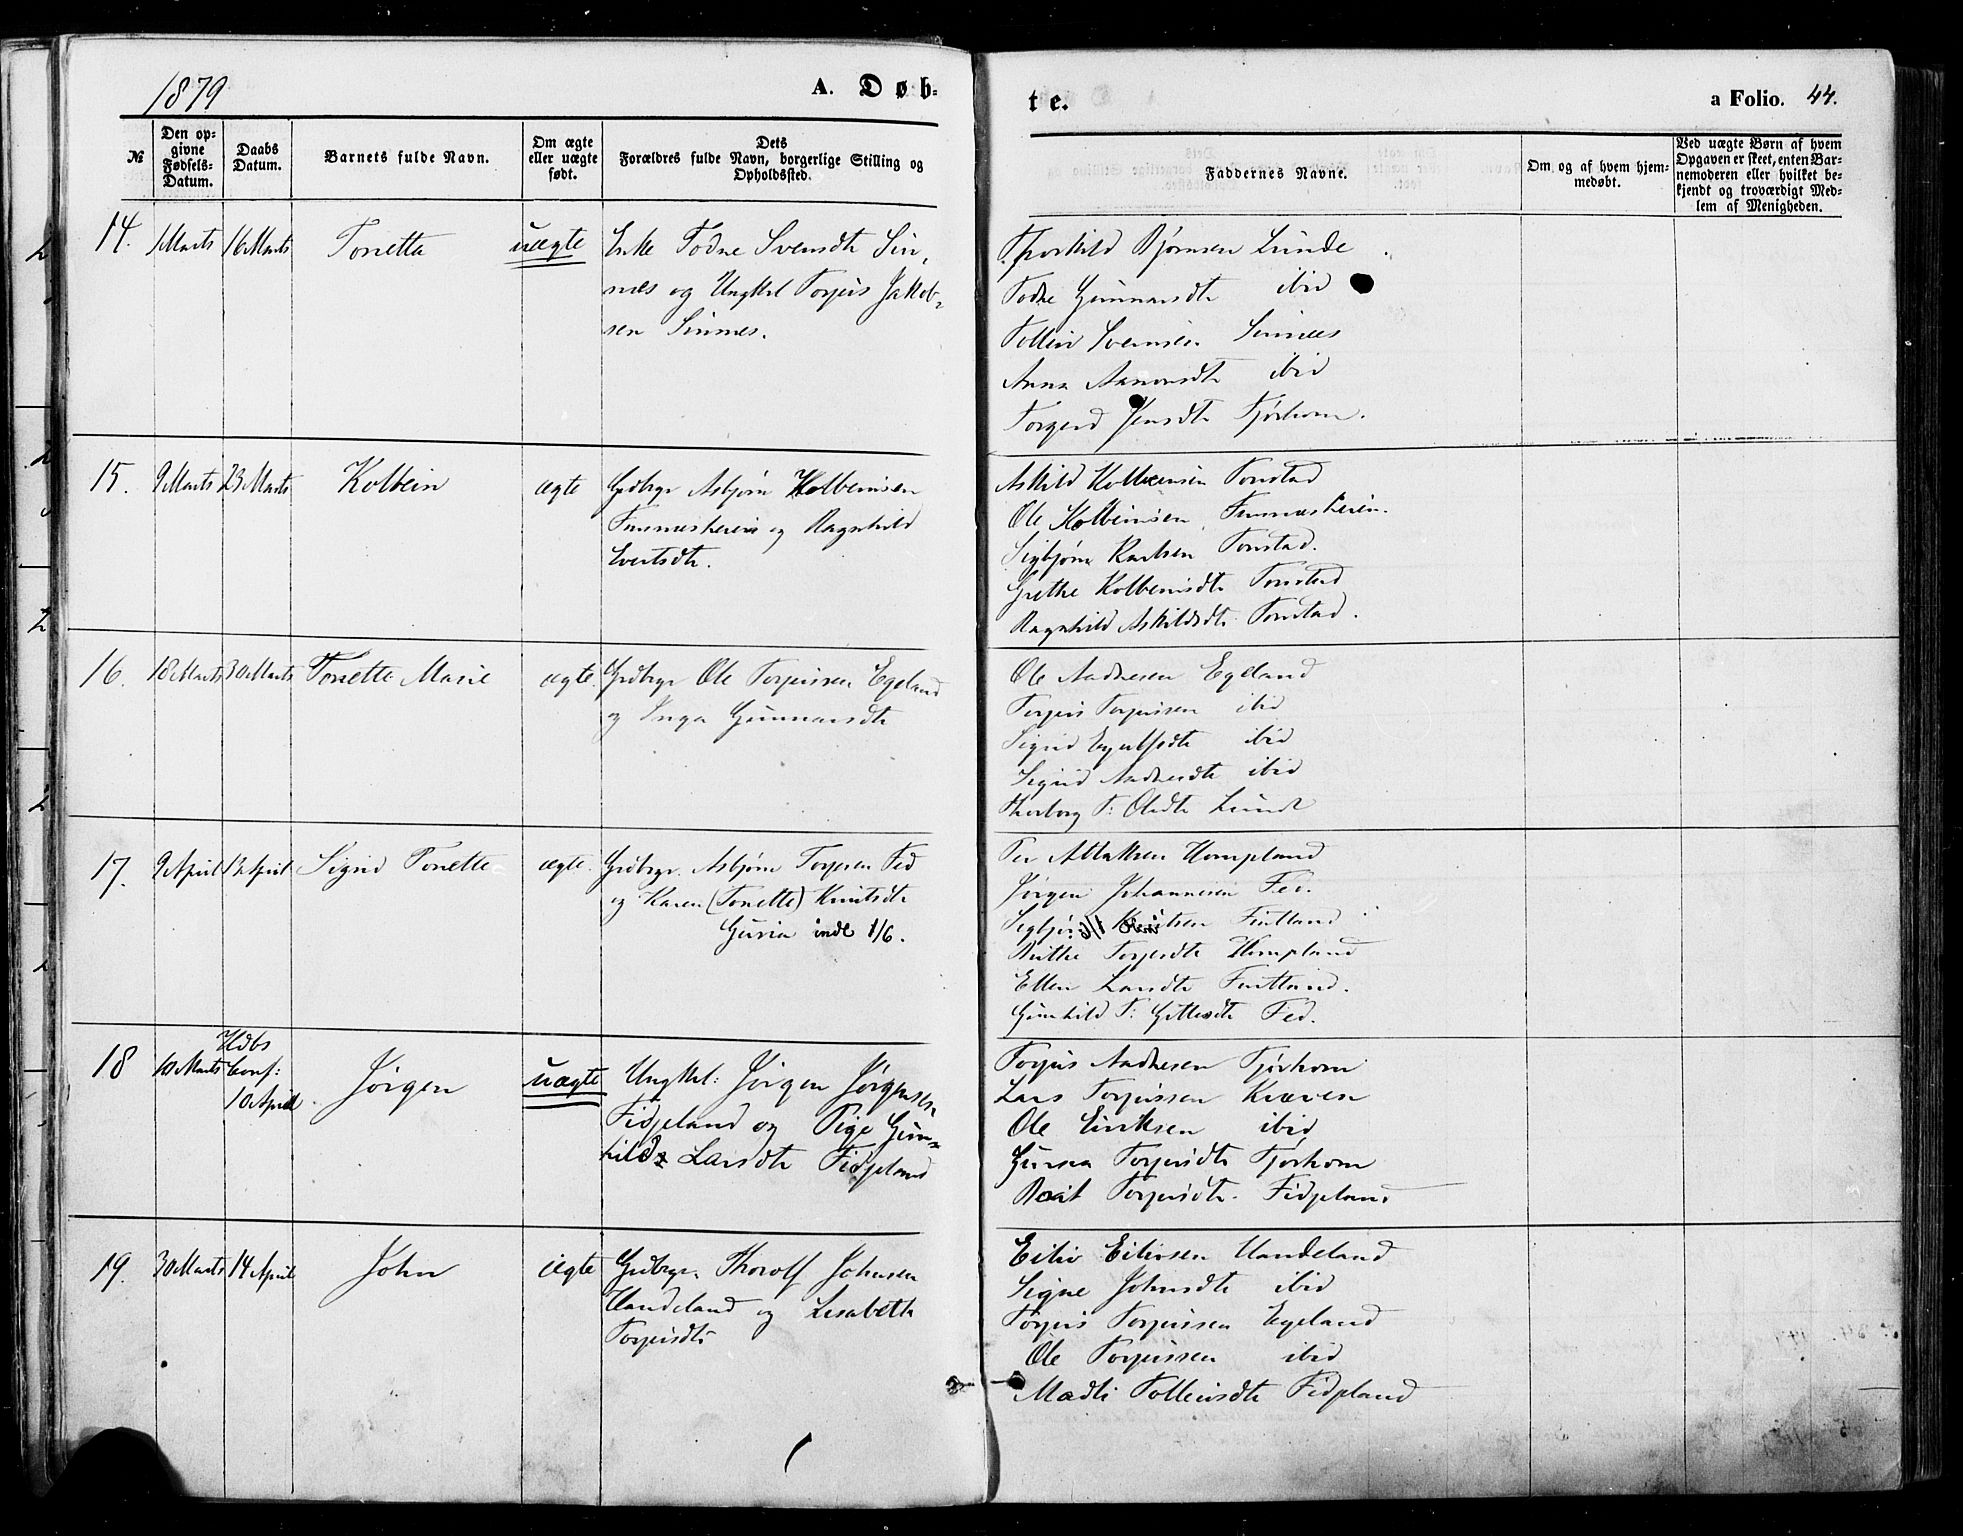 1879
A. Døb-
te.
a Folio. 44.
№
Den opgivne Fødsels-Datum.
Daabs Datum.
Barnets fulde Navn.
Om ægte eller uægte født.
Dets Forældres fulde Navn, borgerlige Stilling og Opholdssted.
Faddernes Navne.
Om og af hvem hjemmedøbt.
Ved uægte Børn af hvem Opgaven er skeet, enten Barnemoderen eller hvilket bekjendt og troværdigt Medlem af Menigheden.
14. 1 Marts 16 Marts Tonetta uægte Enke Todne Svensdtr Sin,
nes og Ungkrl Torjus Jakob-
sen Sinnes.
Thorkild Bjørnsen Lunde
Todne Gunnarsdtr ibid
Tollev Svensen Sinnes
Anna Aanonsdtr ibid
Torgerd Jensdtr Tjørhom.
15. 9 Marts 23 Marts Kolbein ægte Grdbrgr Asbjørn Kolbeinsen
og Ragnhild
Evertsdtr.
Askild Kolbeinsen Tonstad
Ole Kolbeinsen
Sigbjørn Karlsen Tonstad.
Grethe Kolbeinsdtr Tonstad
Ragnhild Askildsdtr Tonstad.
16. 18 Marts 30 Marts Tonette Marie ægte. Grdbrgr Ole Torjussen Egeland
og Inga Gunnarsdtr
Ole Andresen Egeland
Torjus Torjussen ibid
Sigrid ibid
Sigrid Andresdtr ibid
Thorborg T: Olsdtr Lunde
17. 9 April 13 April Sigrid Tonette ægte. Grdbrgr. Asbjørn Torjesen Fed
og Karen (Tonette) Knutsdtr
Guria indl 1/6.
Per Hompland
Jørgen Johannesen Fed.
Sigbjørn Knutsen Fintland
Torjesdtr Hompland
Ellen Larsdtr Fintland.
Gunhild T: Fed.
18 10 Marts Hdbs
Conf:
10 April. Jørgen uægte Ungkrl: Jørgen Jørgensen
Fidjeland og Pige Gun-
hild Larsdtr Fidjeland
Torjus Andresen Tjørhom
Lars Torjussen Kvæven
Ole Eriksen ibid
Guria Torjusdtr Tjørhom
Torjusdtr. Fidjeland
19. 30 Marts 14 April John ægte Grdbrgr. Thorolf Johnsen
Haudeland og Lisabeth
Torjusdtr
Eiliv Eilivsen Haudeland
Signe Johnsdtr ibid
Torjus Torjussen Egeland
Ole Torjussen ibid
Madli Tollevsdtr Fidjeland